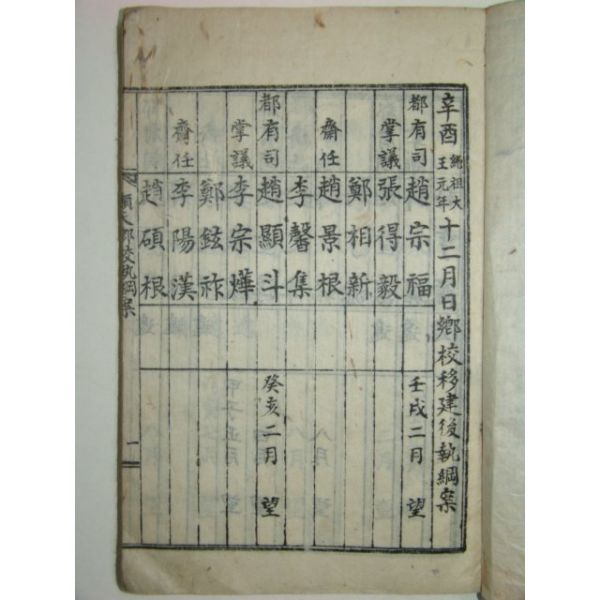 辛酉純祖大王元年十二月日鄕校移建後執綱案
都有司 趙宗福 壬戌二月 望
掌議 張得毅
鄭相新
齋任 趙景根
李馨集
都有司 趙顯斗 癸亥二月 望
掌議 李宗燁
鄭鉉祚
齋任 李陽漢
趙碩根
順天鄕校執綱案 一